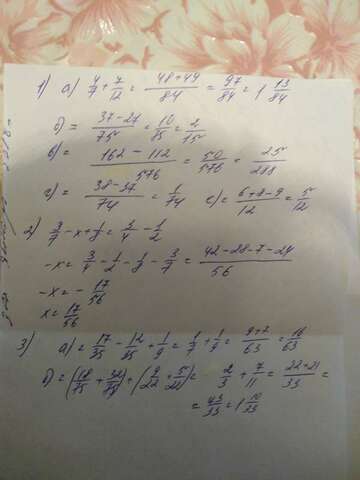 1) а) 4/7 + 7/12 = 48+49/84 = 97/84 = 1 13/84
б) = 37-27/75 = 10/85 = 2/15
в) = 162-112/576 = 50/576 = 25/288
г) = 38-37/74 = 1/74 с) = 6+8-9/12 = 5/12
2) 3/7 - x + 1/8 = 3/4 - 1/2
-x = 3/4 - 1/2 - 1/8 - 3/7 = 42-28-7-24/56
-x = - 17/56
x = 17/56
3) а) = 17/35 - 12/35 + 1/9 = 1/7 + 1/9 = 9+7/63 = 16/63
б) = (18/75 + 32/75) + (9/22 + 5/22) = 2/3 + 7/11 = 22+21/33 =
= 43/33 = 1 10/33